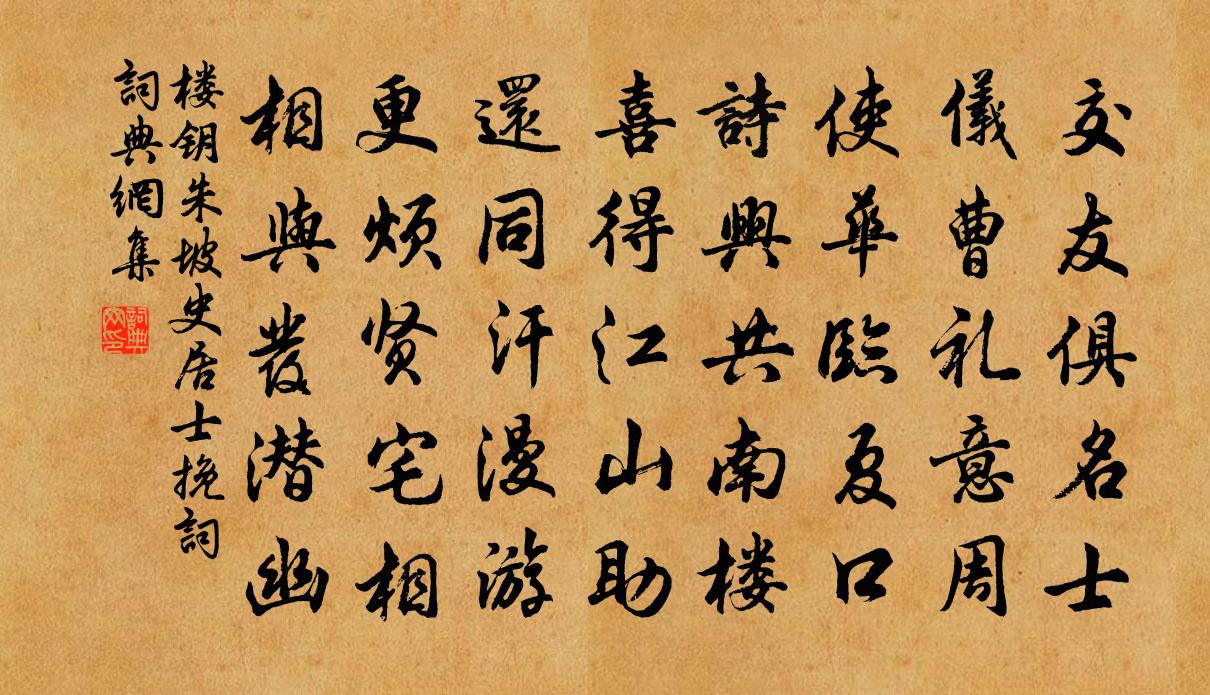 交友俱名士
儀曹礼意周
使華臨夏口
詩興共南楼
喜得江山助
還同汗漫游
更烦贤宅相
相與發潜幽
楼钥朱坡史居士挽詞
詞典網集
詞典网印